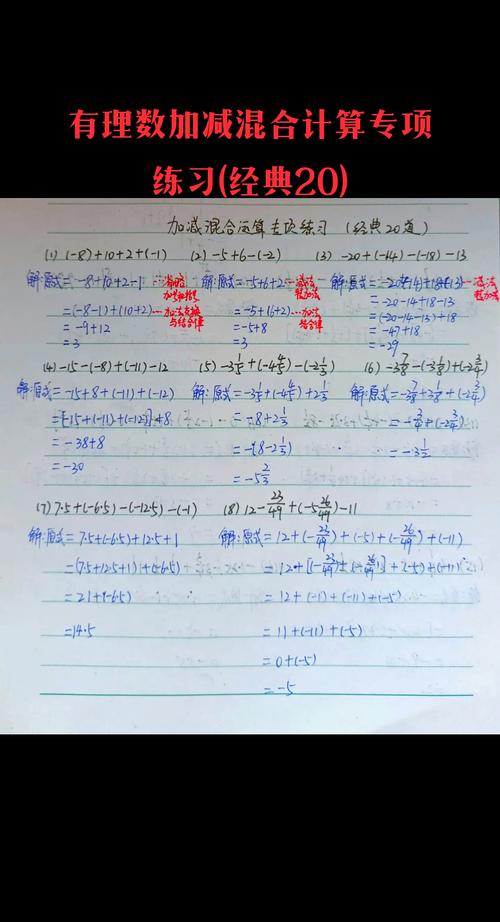 有理数加减混合计算专项
练习(经典20)
加减混合运算专项练习 (经典20道)
(1) (-8)+10+2+(-1) (2) -5+6-(-2) (3) -20+(-14)-(-18)-13
解:原式=-8+10+2-1 …省略加号和括号 解:原式=-5+6+2 …减法程加法 解:原式=-20+(-14)+18+(-13) …减法程加法
=(-8-1)+(10+2) …加法交换与结合律 =-5+(6+2) …加法结合律 =-20-14+18-13
=-9+12 =-5+8 =(-20-14-13)+18
=3 =3 =-47+18
=-29
(4) -15-(-8)+(-11)-12 (5) -3 1/5+(-4 4/5)-(-2 1/3) (6) -3 7/8-(-3 1/8)+(-2 3/4)
解:原式=-15+8+(-11)+(-12) 解:原式=-3 1/5+(-4 4/5)+2 1/3 解:原式=-3 7/8+3 1/8+(-2 3/4)
=[-15+(-11)+(-12)]+8 =-8+2 1/3 =-3/4+(-2 3/4)
=-38+8 =-(8-2 1/3) =-3 1/2
=-30 =-5 2/3
(7) 7.5+(-6.5)-(-12.5)-(-1) (8) 12-23/49+(-5 26/49)-11
解:原式=7.5+(-6.5)+12.5+1 解:原式=12+(-23/49)+(-5)+(-26/49)+(-11)
=(7.5+12.5+1)+(-6.5) =12+[(-23/49)+(-26/49)]+(-5)+(-11)
=21+(-6.5) =12+(-1)+(-11)+(-5)
=14.5 =11+(-11)+(-5)
=0+(-5)
=-5